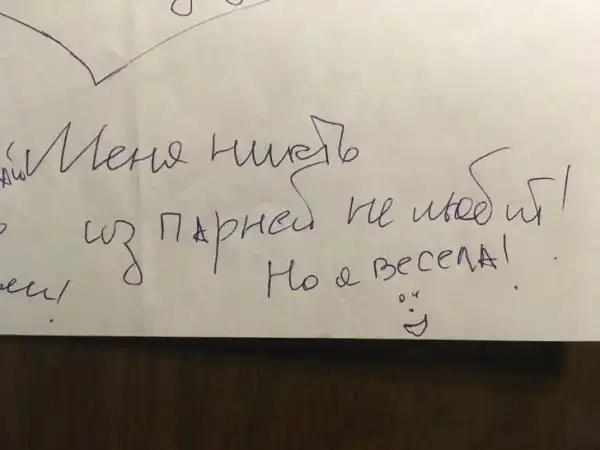 Меня никто
из парней не любит!
Но я весела!